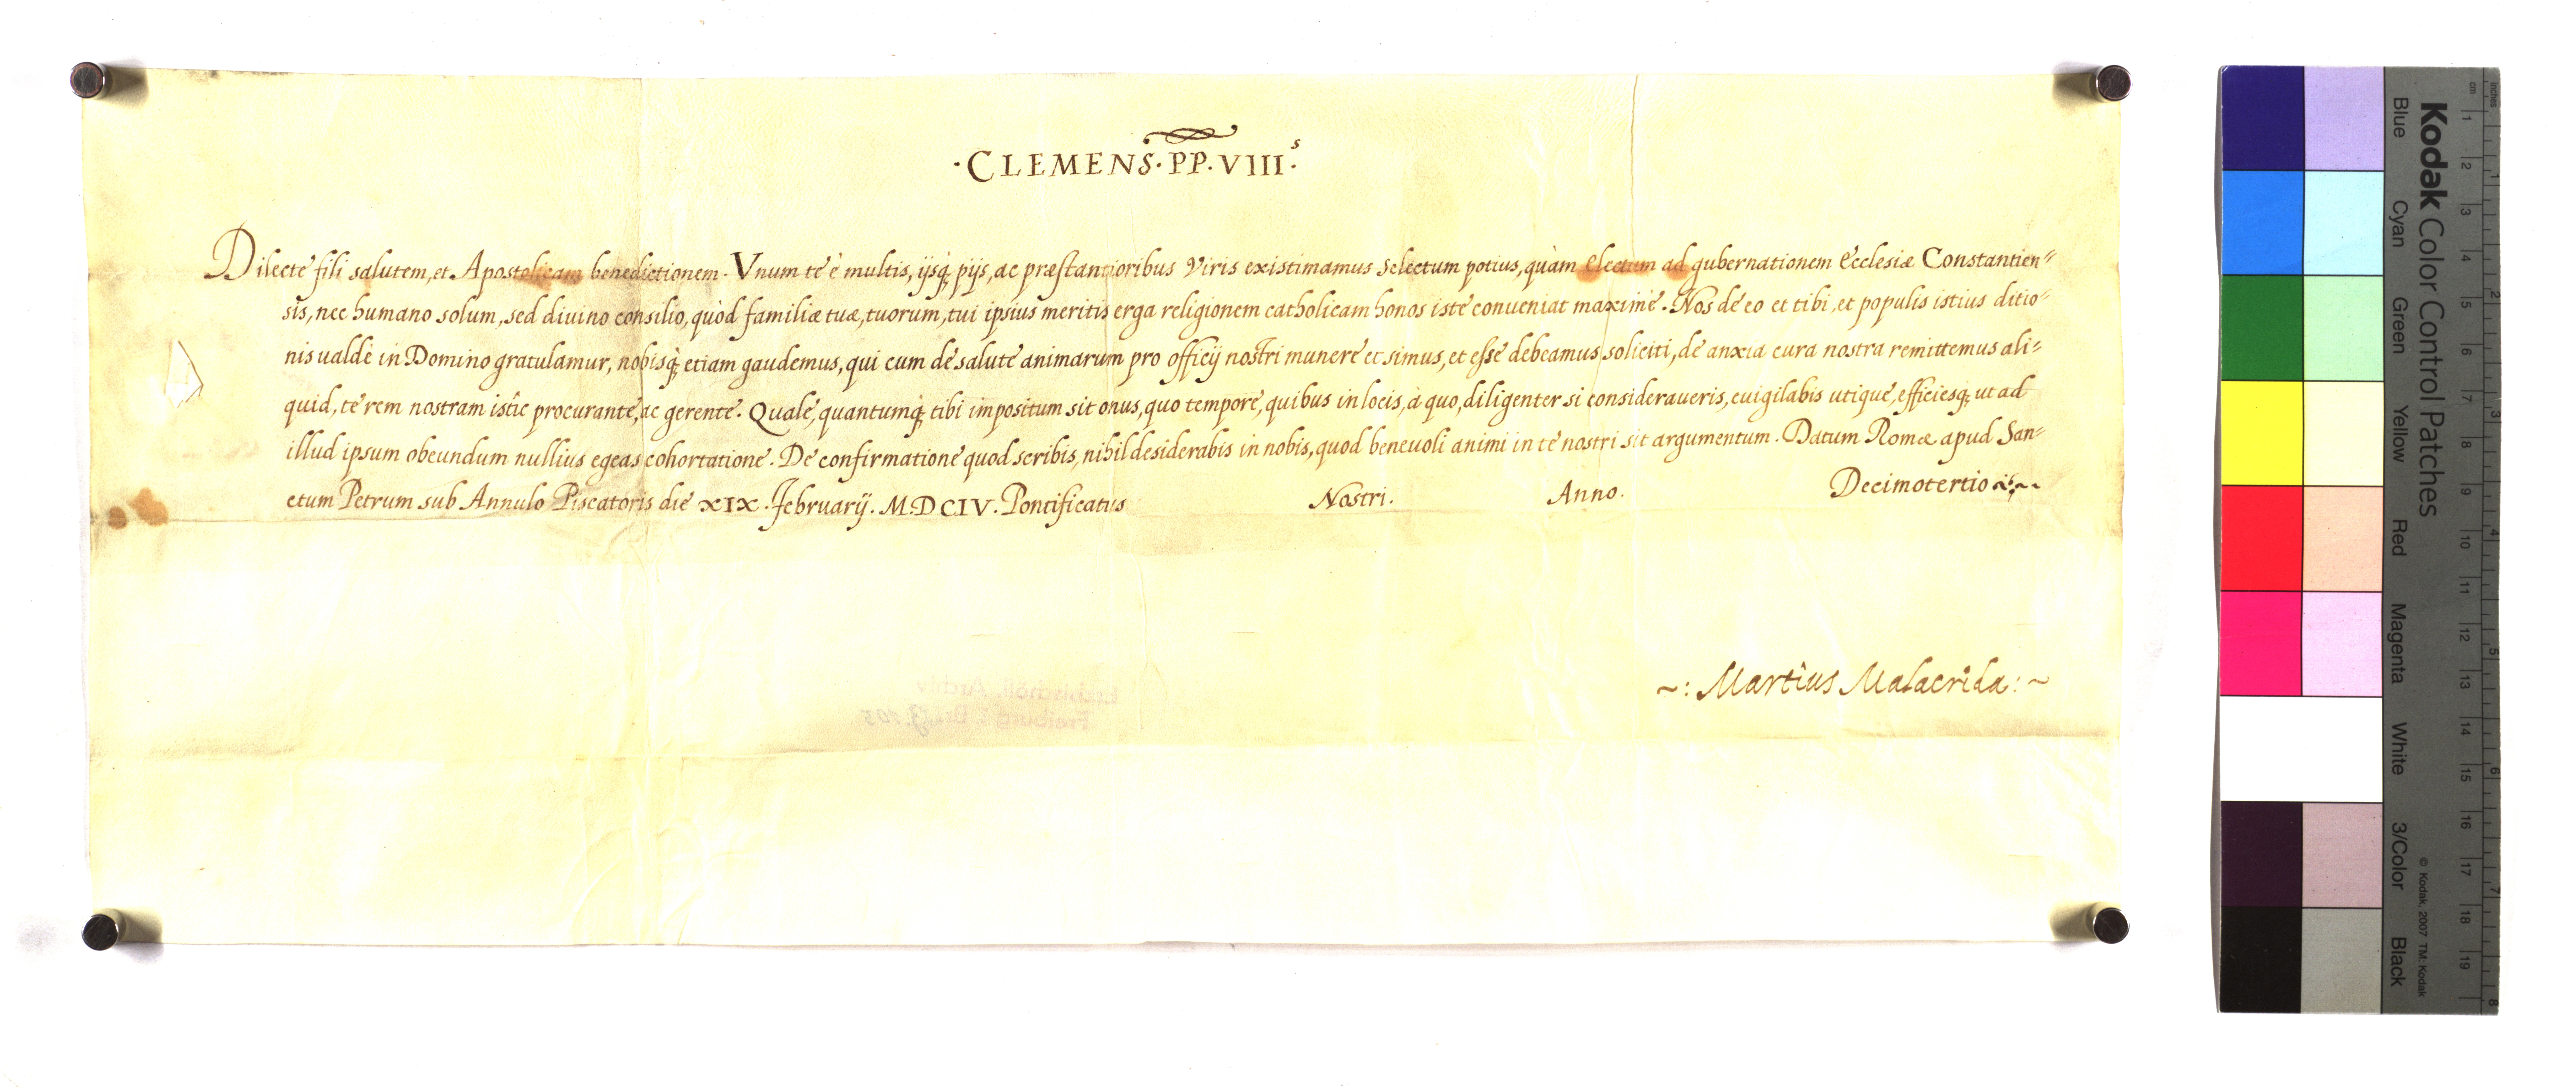 ·CLEMENS·PP·VIIIˢ·
Dilecte fili salutem, et Apostolicam benedictionem. Vnum te è multis, ijsq̀; pijs, ac præstantioribus Viris existimamus Selectum potius, quàm Electum ad gubernationem Ecclesiæ Constantien=
sis, nec humano solum, sed diuino consilio, quòd familiæ tuæ, tuorum, tui ipsius meritis erga religionem catholicam honos iste conueniat maximè. Nos de eo et tibi, et populis istius ditio=
nis ualdè in Domino gratulamur, nobisq̀; etiam gaudemus, qui cum de salute animarum pro officij nostri munere et simus, et esse debeamus soliciti, de anxia cura nostra remittemus ali=
quid, te rem nostram istìc procurante, ac gerente. Quale, quantumq̀; tibi impositum sit onus, quo tempore, quibus in locis, à quo, diligenter si consideraueris, euigilabis utique, efficiesq; ut ad
illud ipsum obeundum nullius egeas cohortatione. De confirmatione quod scribis, nihil desiderabis in nobis, quod beneuoli animi in te nostri sit argumentum. Datum Romæ apud San=
ctum Petrum sub Annulo Piscatoris die XIX. February. M.DCIV. Pontificatus Nostri. Anno. Decimotertio
~: Martius Malacrida :~
Erzbischöfl. Archiv
Freiburg i. Br.
Kodak Color Control Patches
Blue Cyan Green Yellow Red Magenta White 3/Color Black
© Kodak, 2007 TM: Kodak
cm 1 2 3 4 5 6 7 8 9 10 11 12 13 14 15 16 17 18 19
inches 1 2 3 4 5 6 7 8